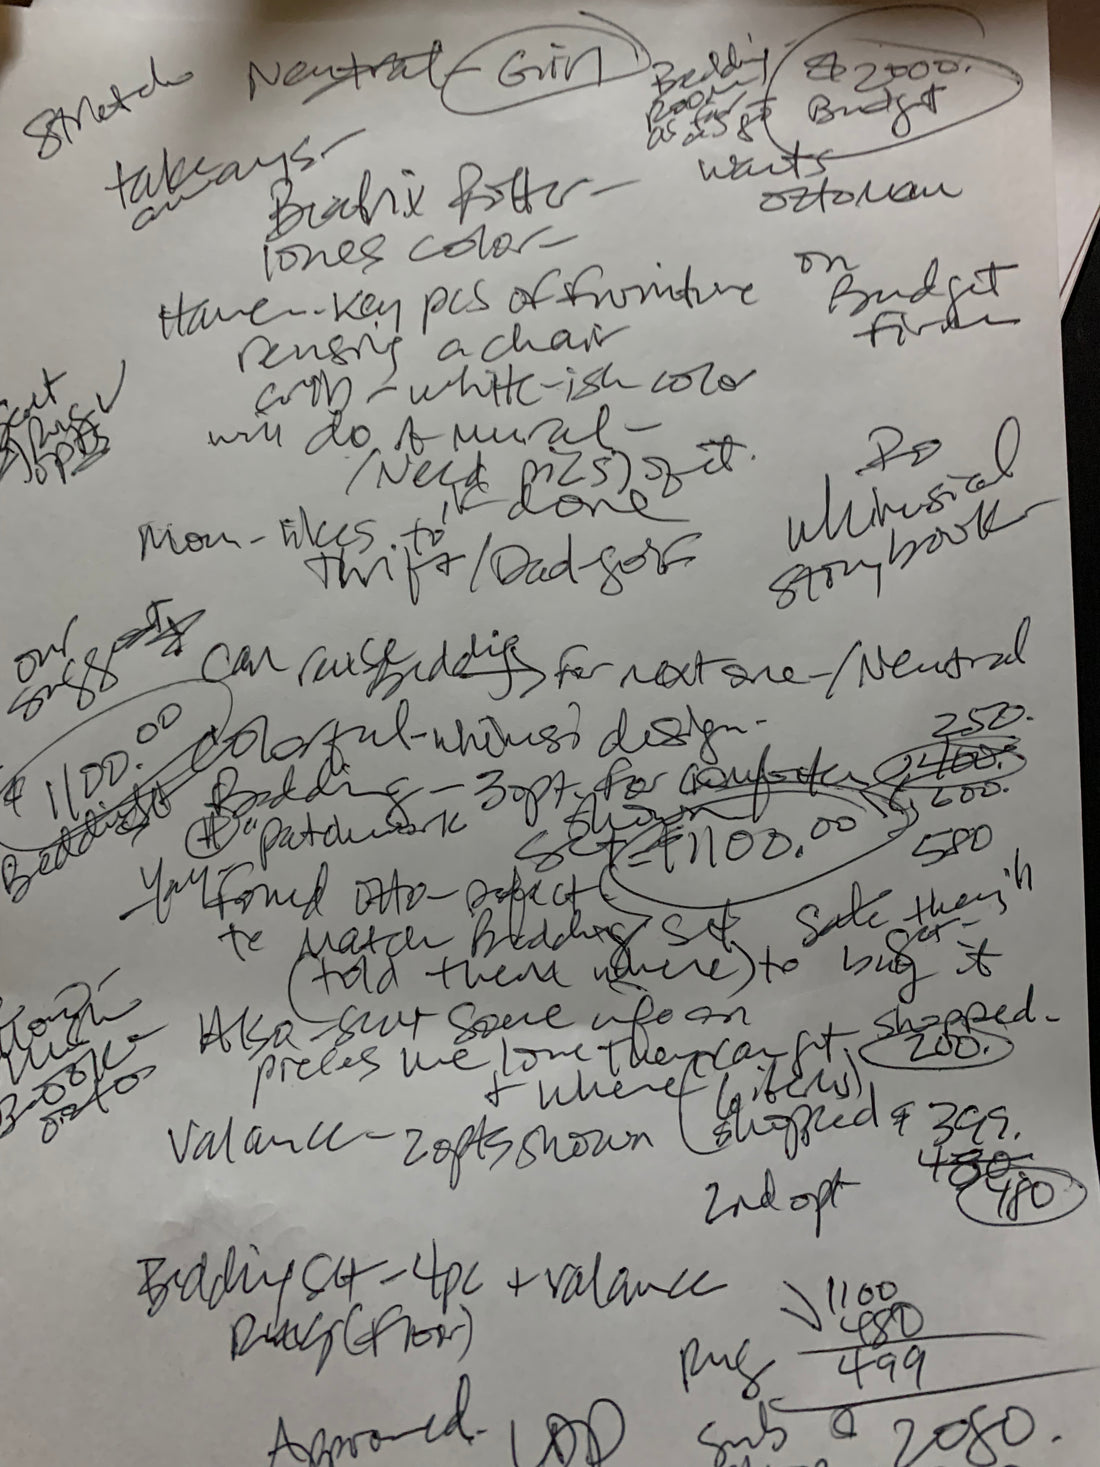 Stretch Neutral - Girl
Bedding Room as far as $2000. Budget
takeaways - wants ottoman
Beatrix Potter -
loves color -
on Budget firm
Have - Key pcs of furniture
reusing a chair
crib - white-ish color
Rug opts
will do A mural -
/Need pi(s) of it.
if done
Do whimsical storybook
Mom - likes to
thrift / Dad - golf
our sugg
Can reuse Bedding for next one - / Neutral
$1100.00
Colorful - whimsi design -
250.
Bedding - 3 opt. for comforter 400.
shown 600.
"Patchwork
Set = $1100.00
580
Yay - found otto - perfect
to match Bedding set
(told them where) to buy it
Also - sent some info on
pieces we love they can get shopped -
200.
+ where (items)
Valance - 2 opts shown (shopped $399.
480.
2nd opt 480
Bedding set - 4pc + valance
1100
Rug (floor)
480
Rug 499
Approved.
Sub $ 2080.